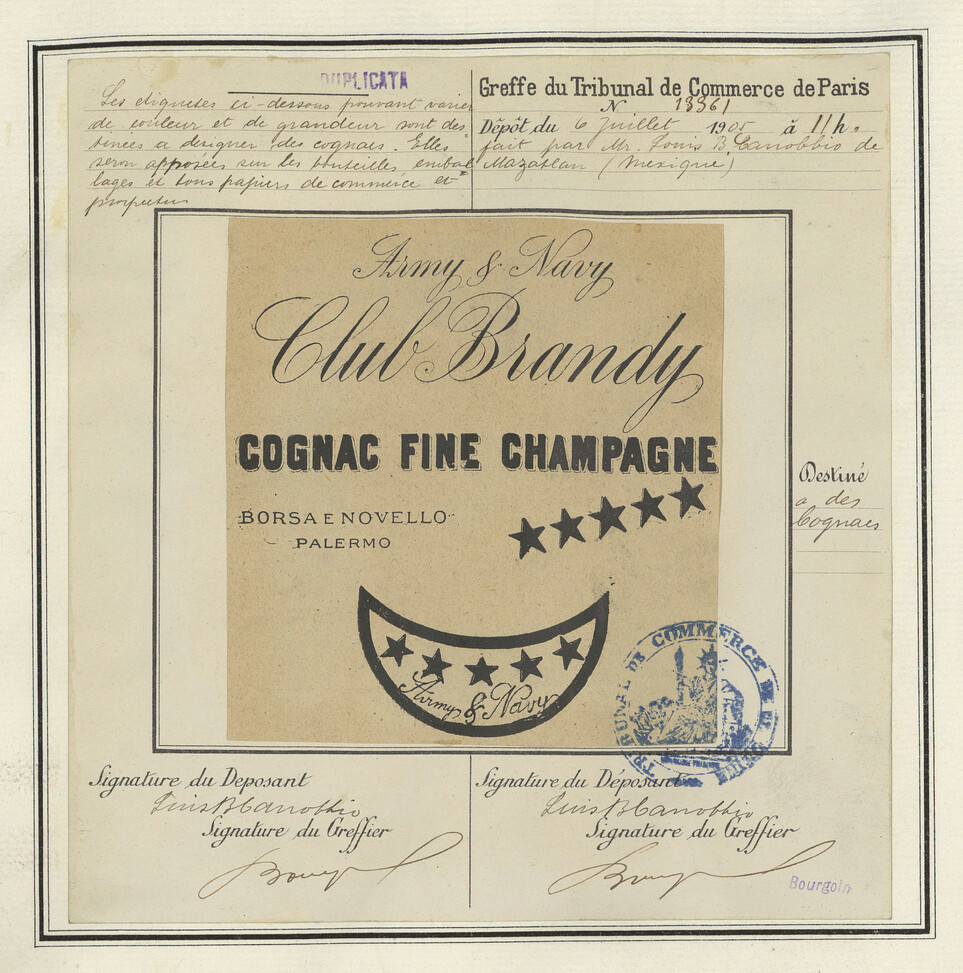 DUPLICATA
Les etiquetes ci-dessous pouvant varier
de couleur et de grandeur sont des
tinées a designer des cognacs. Elles
seron apposées sur les bouteilles, embal
lages et tous papiers de commerce et
Greffe du Tribunal de Commerce de Paris
N 13361
Dépôt du 6 Juillet 1905 à 11 h.
fait par Mr. Louis B. Canobbio de
Mazatlan (Mexique)
Army & Navy
Club Brandy
COGNAC FINE CHAMPAGNE
BORSA E NOVELLO
PALERMO
Army & Navy
Destiné
a des
Cognacs
TRIBUNAL DE COMMERCE DE LA SEINE
Signature du Deposant
Luis B Canobbio
Signature du Greffier
Signature du Déposant
Luis B Canobbio
Signature du Greffier
Bourgoin